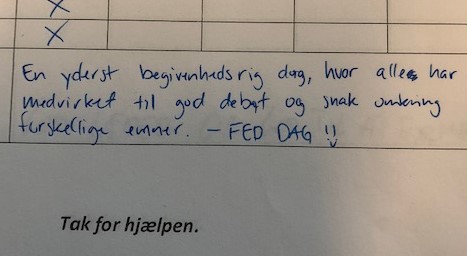 X
X
En yderst begivenhedsrig dag, hvor alle har
medvirket til god debat og snak omkring
forskellige emner. – FED DAG !!
Tak for hjælpen.